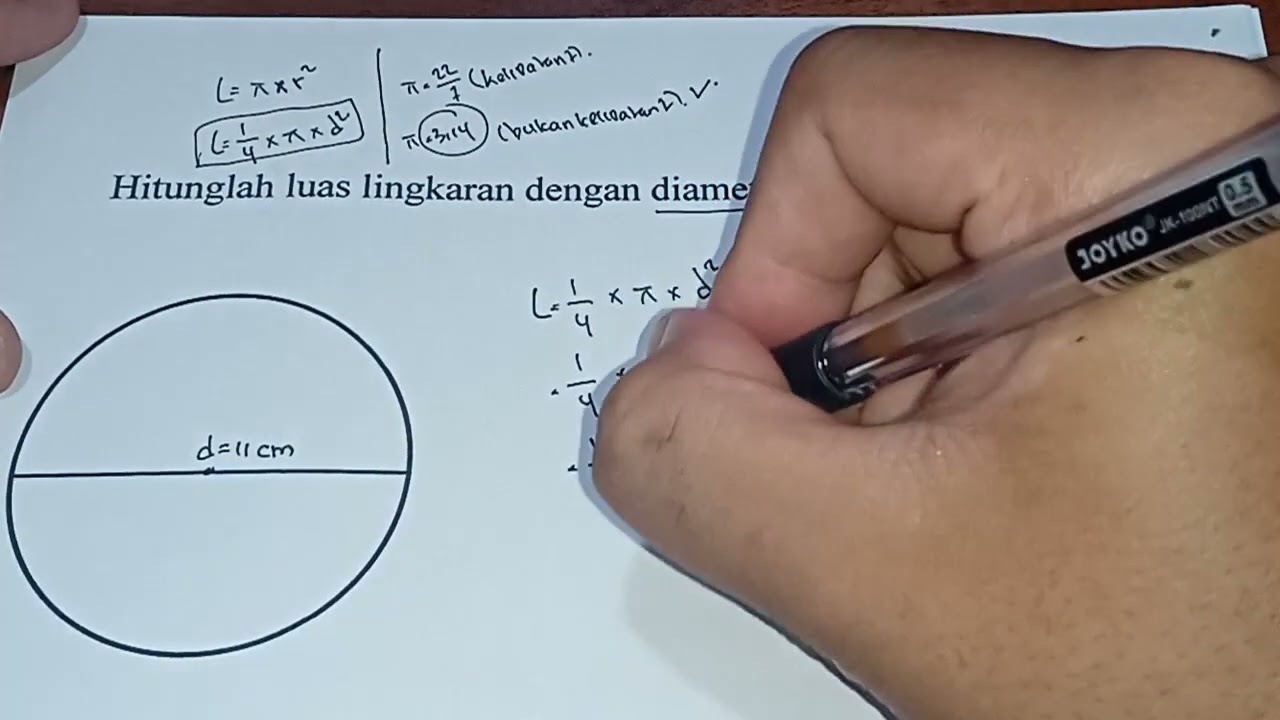 L = π × r²
L = 1/4 × π × d²
π = 22/7 (kelipatan 7).
π = 3,14 (bukan kelipatan 7). ✓.
Hitunglah luas lingkaran dengan diame
L = 1/4 × π × d²
= 1/4
d = 11 cm
JOYKO JK-100NT 0.5 mm